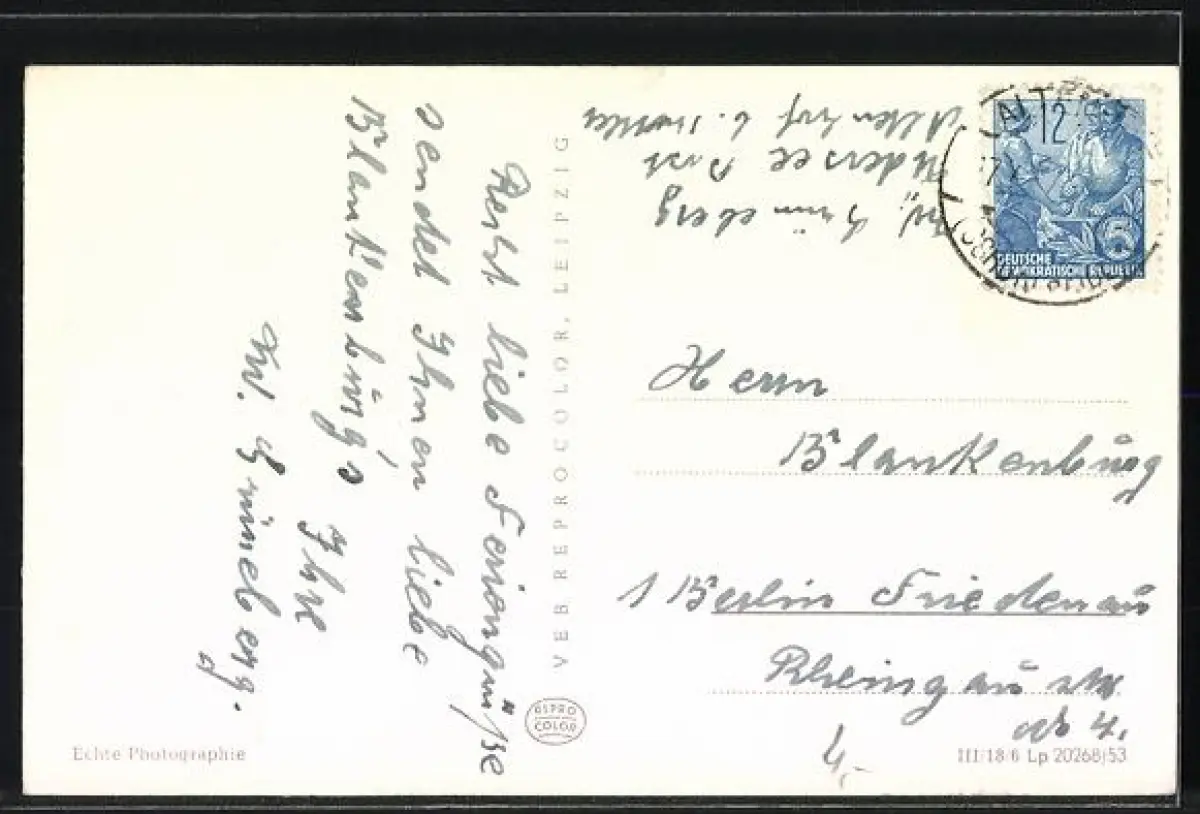 Recht liebe Feriengrüsse
sendet Ihnen liebe
Blankenburgs
Ihre
W. Grüneberg.
VEB REPROCOLOR, LEIPZIG
REPRO
COLOR
W. Grüneberg
Post
Altenhof b.
12
DEUTSCHE
DEMOKRATISCHE REPUBLIK
5
Herrn
Blankenburg
1 Berlin Friedenau
Rheingau str
4.
4,-
Echte Photographie
III/18/6 Lp 20268/53